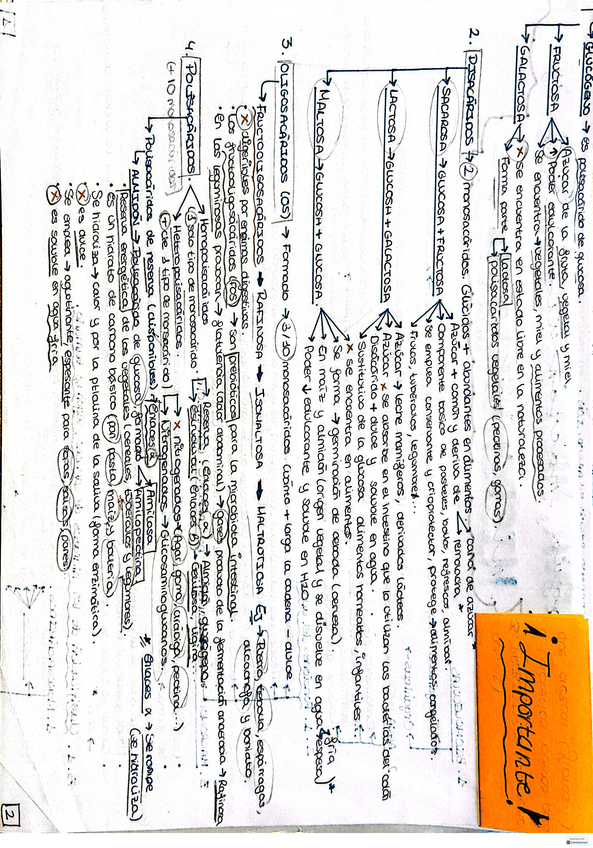 → GLUCÓGENO → es polisacárido de glucosa.
→ FRUCTOSA
Azúcar de la fruta, vegetal y miel
↑ Poder edulcorante.
Se encuentra → vegetales, miel y alimentos procesados.
→ GALACTOSA
x se encuentra en estado libre en la naturaleza.
Forma parte → Lactosa
polisacáridos vegetales (pectinas, gomas)
2. DISACÁRIDOS → 2 monosacáridos. Glúcidos + abundantes en alimentos
→ SACAROSA → GLUCOSA + FRUCTOSA
Azúcar + común y deriva de
caña de azúcar *
remolacha *
Componente básico de pasteles, bollos, refrescos, almíbar.
Se emplea conservante y crioprotector, protege → alimentos congelados.
Frutas, tubérculos, legumbres...
→ LACTOSA → GLUCOSA + GALACTOSA
Azúcar → leche mamíferos, derivados lácteos.
Azúcar x se absorbe en el intestino que lo utilizan las bacterias del colon
Disacárido + dulce y soluble en agua.
Sustitutivo de la glucosa, alimentos horneados, infantiles
→ MALTOSA → GLUCOSA + GLUCOSA
x se encuentra en alimentos.
Se forma → germinación de cebada (cerveza).
En maíz y almidón (origen vegetal y se disuelve en agua fría, espesa) *
Poder ↓ edulcorante y soluble en H2O
3. OLIGOSACÁRIDOS (OS) → Formado → 3/10 monosacáridos cuanto + larga la cadena - dulce
→ FRUCTOOLIGOSACÁRIDOS → RAFINOSA → ISOMALTOSA → MALTOTIOSA Ej →
cebolla, espárragos,
alcachofa y boniato.
(x) digeribles por enzimas digestivas.
· Los fructooligosacáridos (FOS) → son prebióticos para la microbiota intestinal.
· en las leguminosas provocan → flatulencia (dolor abdominal) → gases producto de la fermentación anaerobia → Rafinosa
4. POLISACÁRIDOS
(+10 monosacáridos)
Homopolisacáridos
(1 solo tipo de monosacárido)
Reserva (enlaces α) → Almidón, glucógeno
estructural (enlaces β) → Celulosa, lignina
Heteropolisacáridos
(+ de 1 tipo de monosacárido)
x nitrogenados → Agar, goma, pectina...)
Nitrogenados → Glicosaminoglucanos
→ Polisacáridos de reserva (disponibles) → Enlaces α
* Enlaces α → Se rompe
(se hidroliza)
→ ALMIDÓN → Polisacárido de glucosa formado
Amilosa
Amilopectina
· Reserva energética de los vegetales (cereales, tubérculos y legumbres).
· es un hidrato de carbono básico (pan, pasta, maíz y bollería).
· Se hidroliza → calor y por la ptialina de la saliva (forma enzimática).
(x) es dulce.
· Se emplea → aglutinante, espesante para salsas (purés)
(x) es soluble en agua fría
¡Importante!
1
2